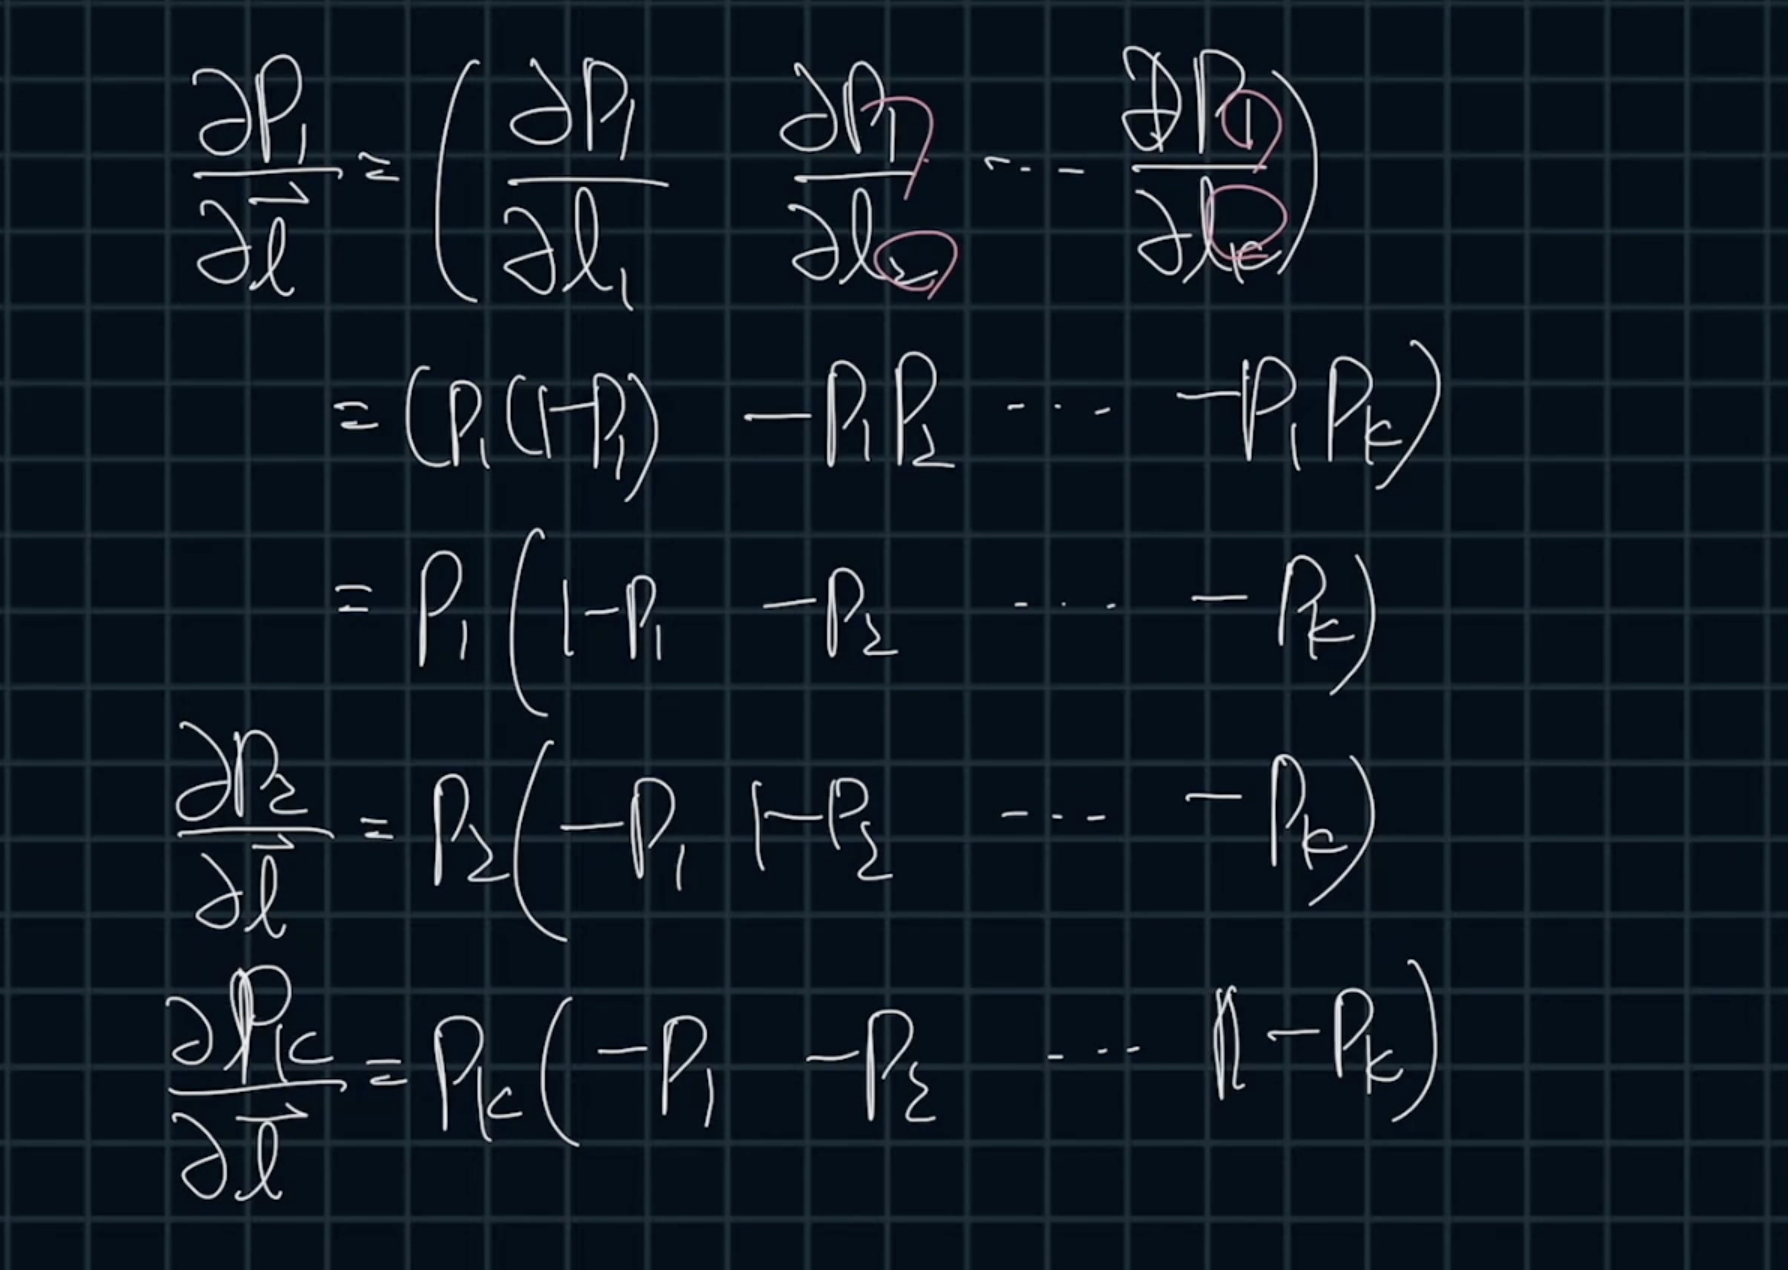 ∂P₁/∂l⃗ = ( ∂P₁/∂l₁ ∂P₁/∂l₂ ... ∂P₁/∂lₖ )
= (P₁(1-P₁) -P₁P₂ ... -P₁Pₖ)
= P₁ ( 1-P₁ -P₂ ... -Pₖ )
∂P₂/∂l⃗ = P₂ ( -P₁ 1-P₂ ... -Pₖ )
∂Pₖ/∂l⃗ = Pₖ ( -P₁ -P₂ ... 1-Pₖ )